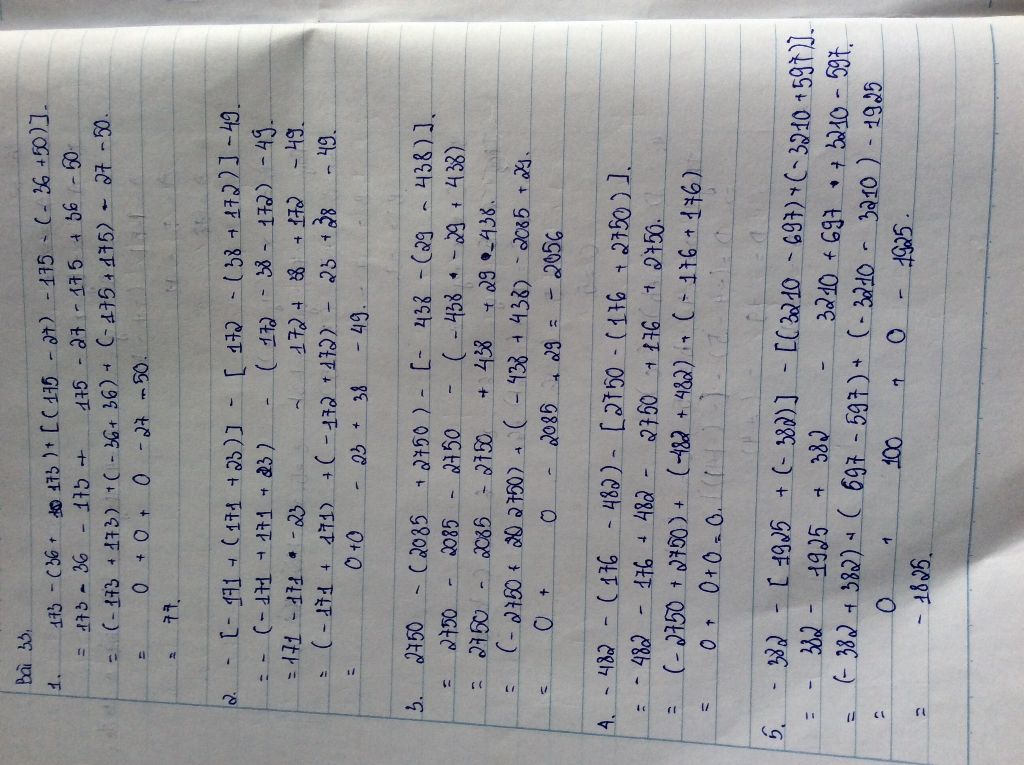 Bài 33.
1. 173 - (36 + 173) + [(175 - 27) - 175 - (-36 + 50)].
= 173 - 36 - 173 + 175 - 27 - 175 + 36 - 50.
= (-173 + 173) + (-36 + 36) + (-175 + 175) - 27 - 50.
= 0 + 0 + 0 - 27 - 50.
= 77.
2. - [-171 + (171 + 23)] - [172 - (38 + 172)] - 49.
= - (-171 + 171 + 23) - (172 - 38 - 172) - 49.
= 171 - 171 - 23 - 172 + 38 + 172 - 49.
= (-171 + 171) + (-172 + 172) - 23 + 38 - 49.
= 0 + 0 - 23 + 38 - 49.
3. 2750 - (2085 + 2750) - [- 438 - (29 - 438)].
= 2750 - 2085 - 2750 - (-438 - 29 + 438)
= 2750 - 2085 - 2750 + 438 + 29 - 438.
= (-2750 + 2750) + (-438 + 438) - 2085 + 29.
= 0 + 0 - 2085 + 29 = - 2056
4. - 482 - (176 - 482) - [2750 - (176 + 2750)].
= - 482 - 176 + 482 - 2750 + 176 + 2750.
= (-2750 + 2750) + (-482 + 482) + (-176 + 176)
= 0 + 0 + 0 = 0.
5. - 382 - [1925 + (-382)] - [(3210 - 697) + (-3210 + 597)].
= - 382 - 1925 + 382 - 3210 + 697 + 3210 - 597.
= (-382 + 382) + (697 - 597) + (-3210 - 3210) - 1925
= 0 + 100 + 0 - 1925.
= - 1825.